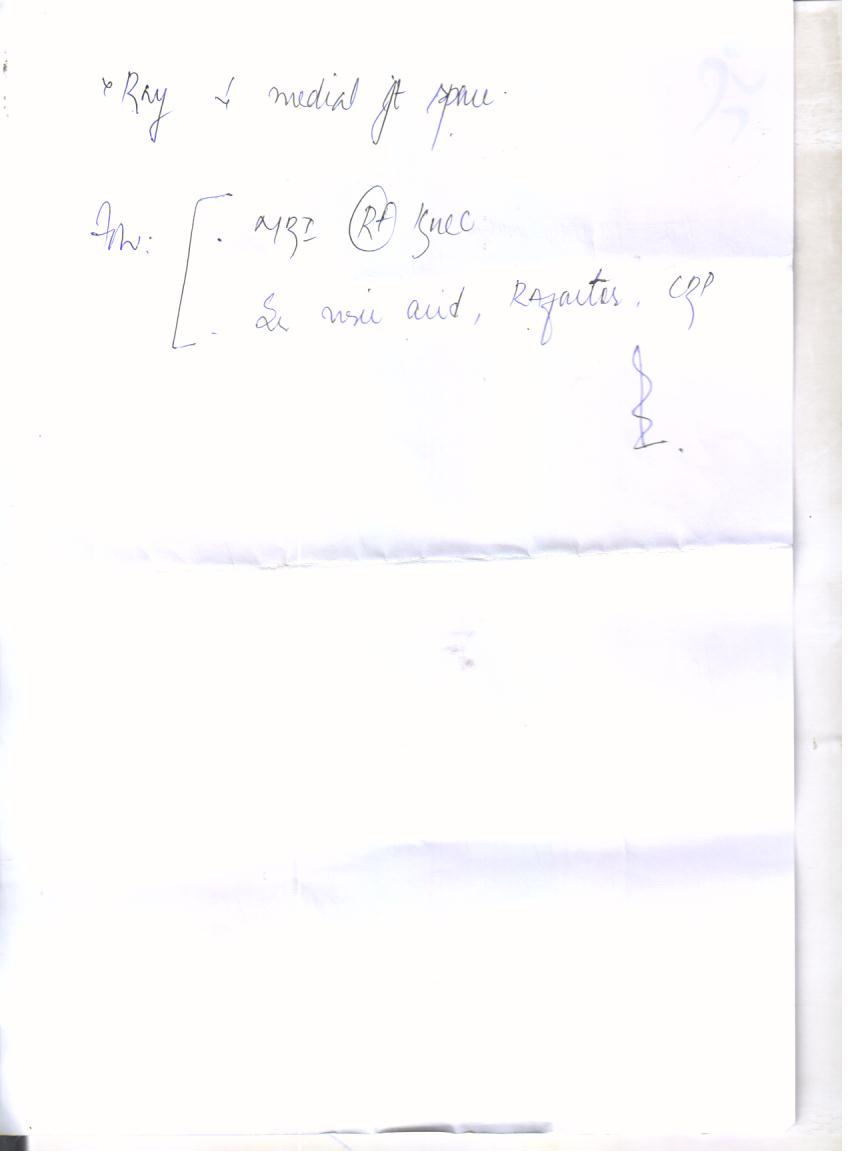 x Ray ↓ medial jt space.
Inv: . MRI Rt Knee
. Sr uric acid, RA factor, CRP